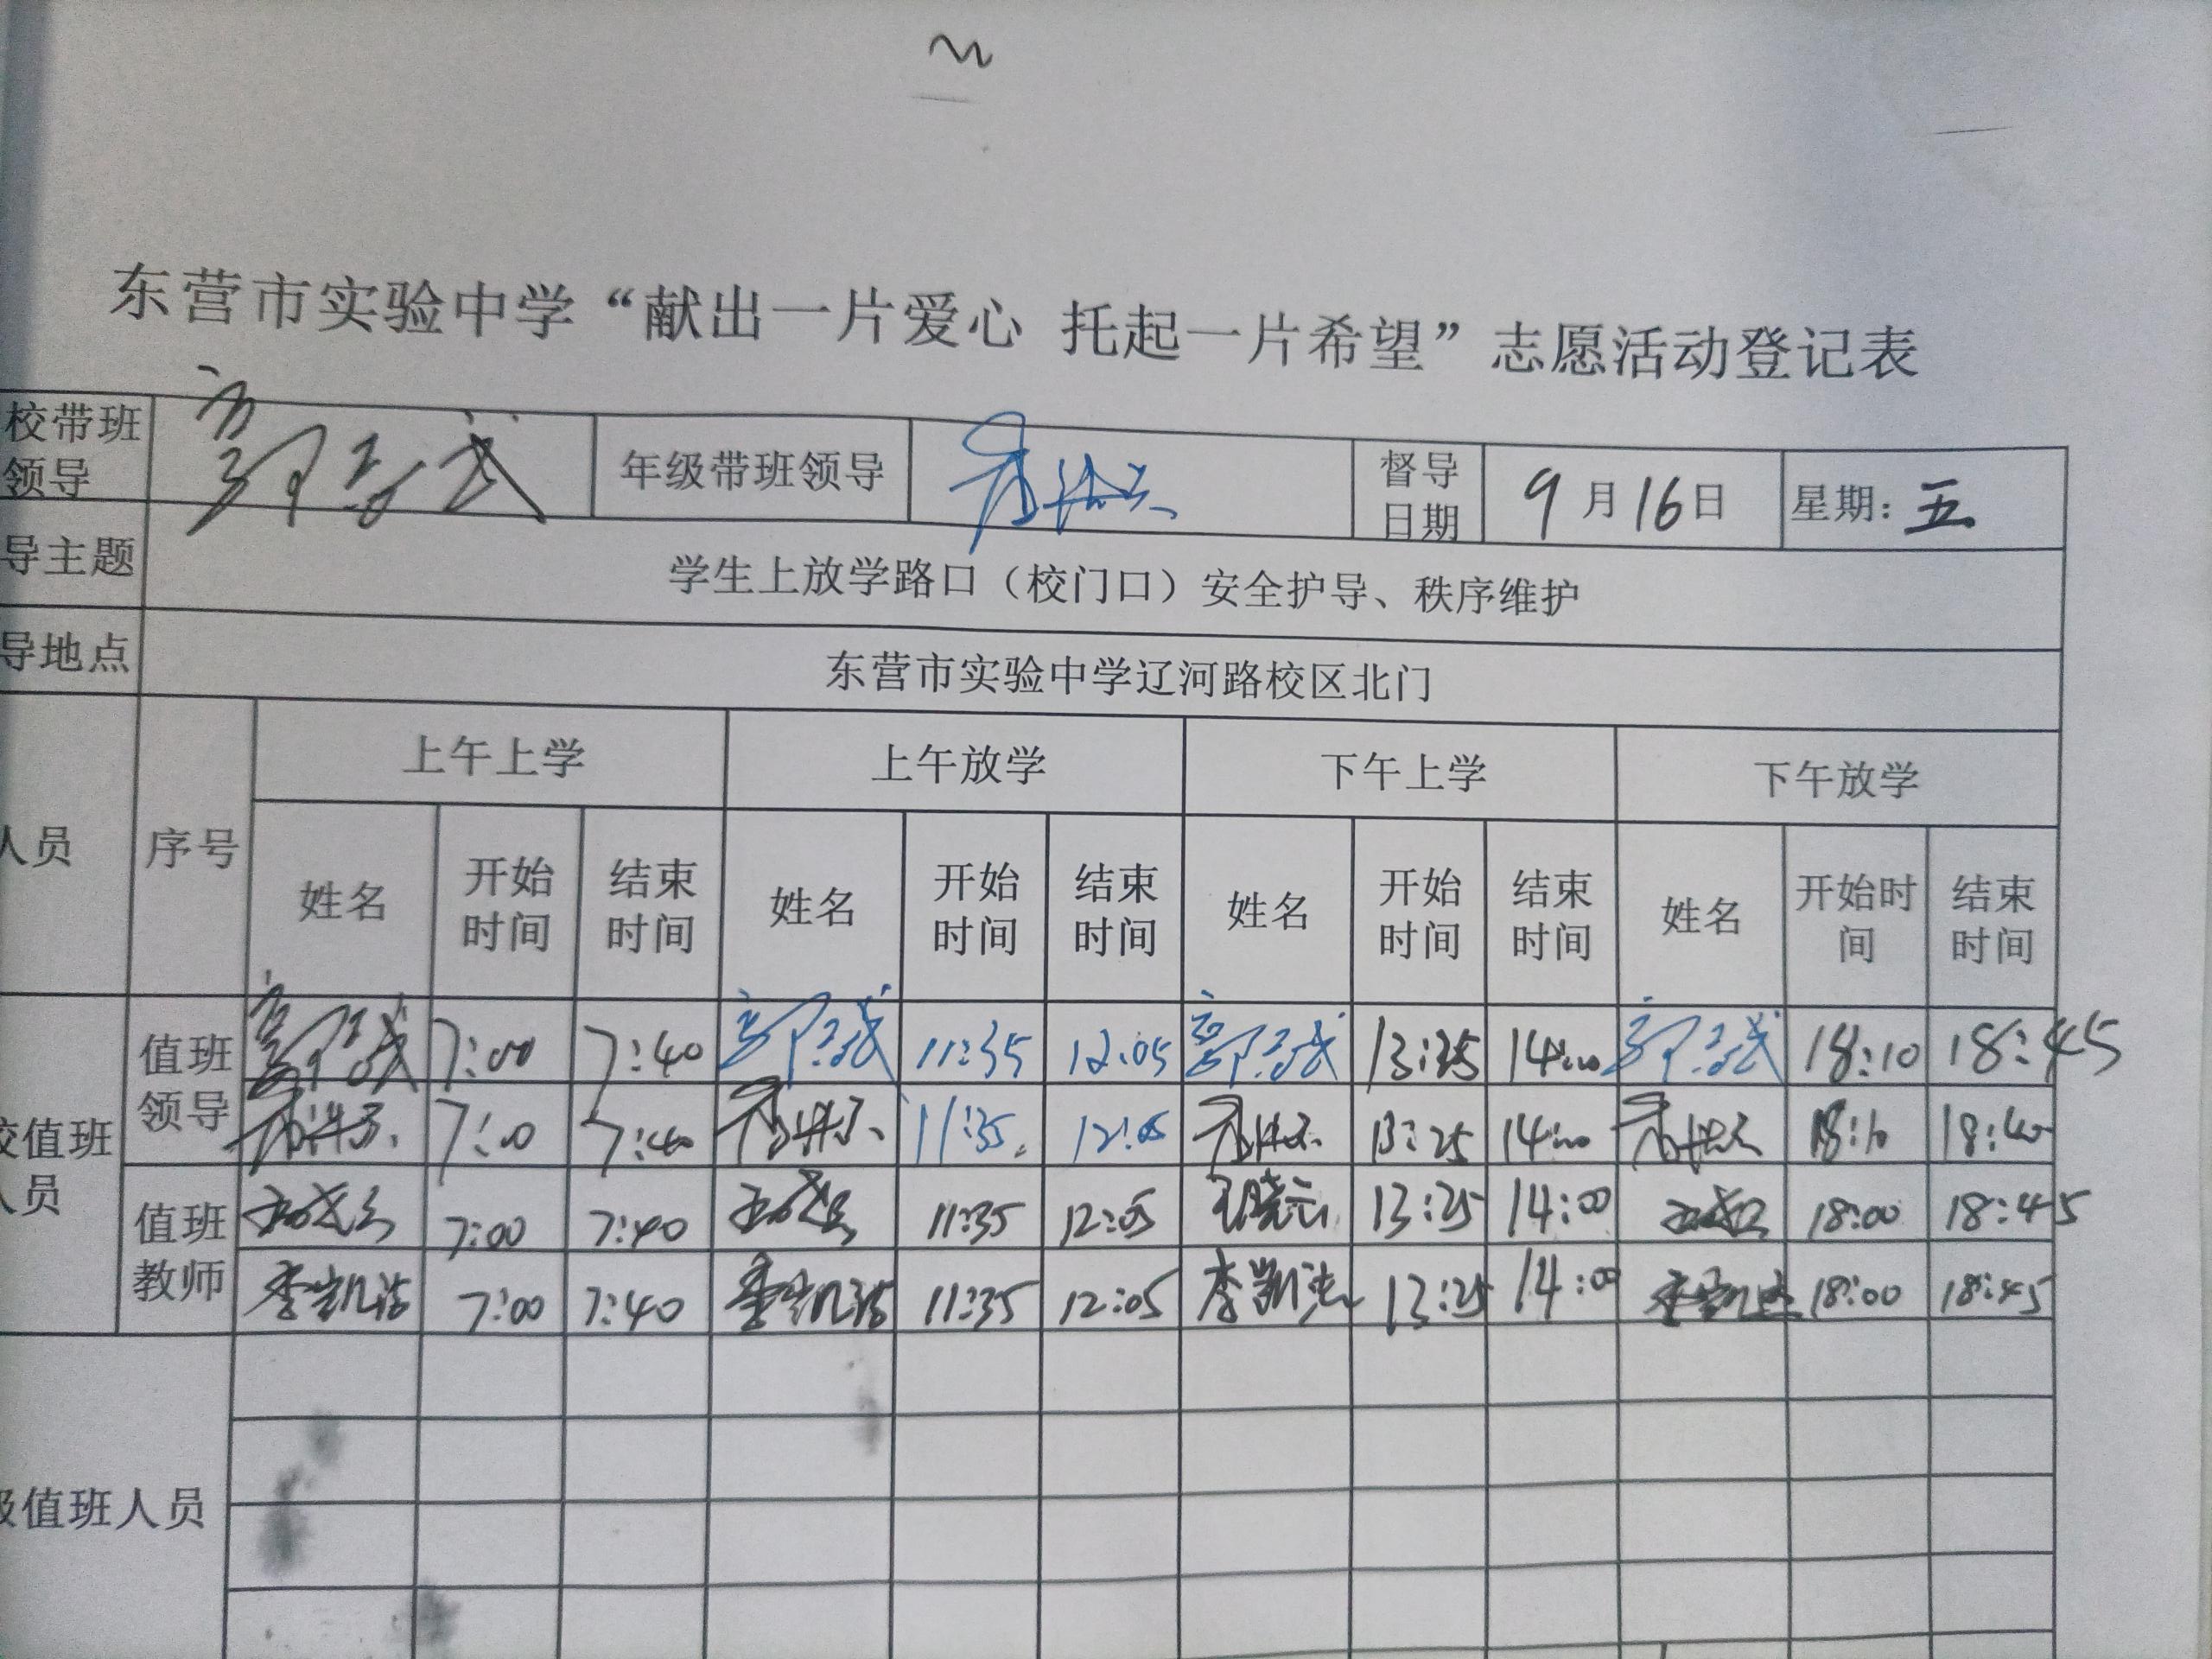 东营市实验中学“献出一片爱心 托起一片希望”志愿活动登记表
校带班领导 年级带班领导 督导日期 9月16日 星期：五
导主题 学生上放学路口（校门口）安全护导、秩序维护
导地点 东营市实验中学辽河路校区北门
人员 序号 上午上学 上午放学 下午上学 下午放学
姓名 开始时间 结束时间 姓名 开始时间 结束时间 姓名 开始时间 结束时间 姓名 开始时间 结束时间
校值班人员 值班领导 7:00 7:40 11:35 12:05 13:25 14:00 18:10 18:45
7:00 7:40 11:35 12:05 13:25 14:00 18:10 18:40
值班教师 7:00 7:40 11:35 12:05 王晓云 13:25 14:00 18:00 18:45
李凯洁 7:00 7:40 李凯洁 11:35 12:05 李凯洁 13:25 14:00 李凯洁 18:00 18:45
级值班人员